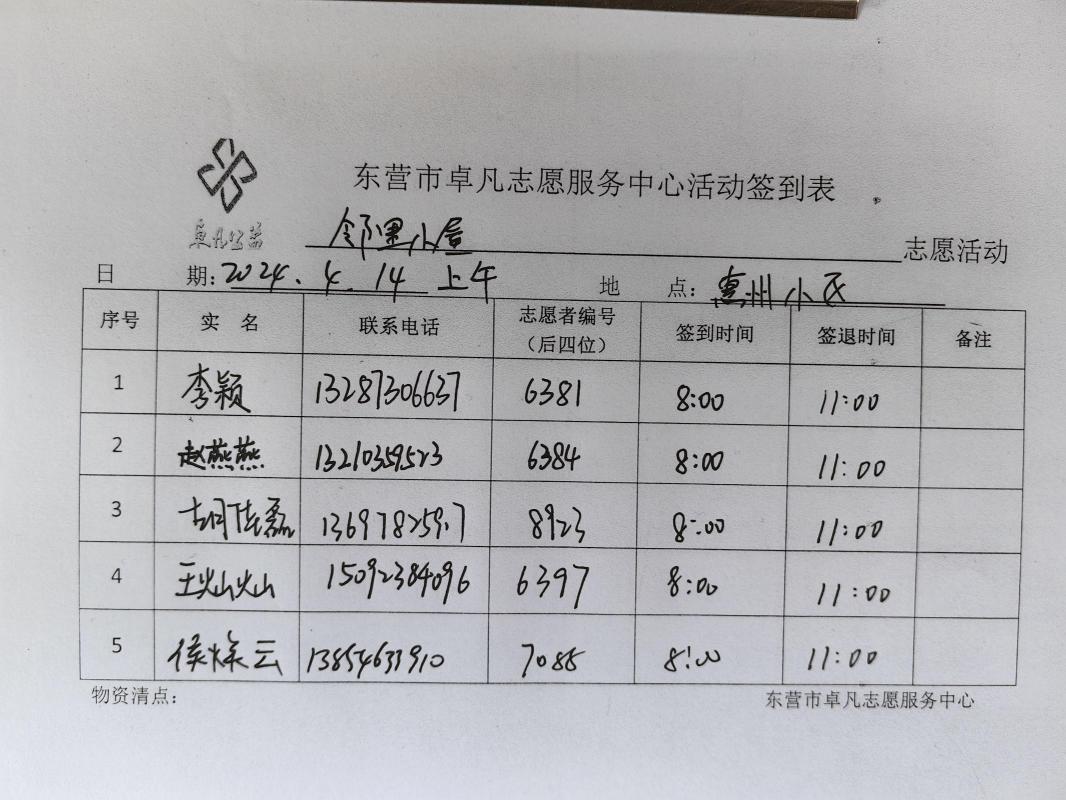 东营市卓凡志愿服务中心活动签到表
卓凡公益
邻里小屋 志愿活动
日 期：2024.4.14上午 地 点：惠州小区
序号 实 名 联系电话 志愿者编号（后四位） 签到时间 签退时间 备注
1 李颖 13287306637 6381 8:00 11:00
2 赵燕燕 13210359523 6384 8:00 11:00
3 胡佳磊 8923 8:00 11:00
4 王灿灿 15092384096 6397 8:00 11:00
5 侯焕云 13854633910 7088 8:00 11:00
物资清点： 东营市卓凡志愿服务中心